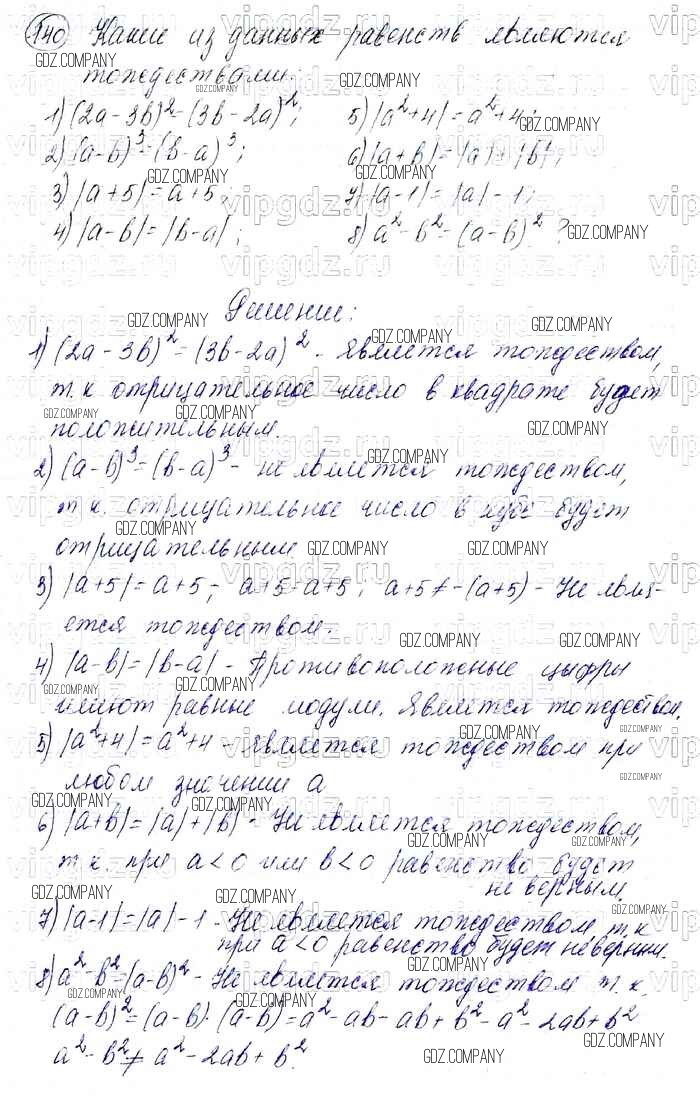 140 Какие из данных равенств являются
тождествами:
1) (2a-3b)²=(3b-2a)²; 5) |a²+4|=a²+4;
2) (a-b)³=(b-a)³; 6) |a+b|=|a|+|b|;
3) |a+5|=a+5; 7) |a-1|=|a|-1;
4) |a-b|=|b-a|; 8) a²-b²=(a-b)²?
Решение:
1) (2a-3b)²=(3b-2a)² - является тождеством,
т.к отрицательное число в квадрате будет
положительным.
2) (a-b)³=(b-a)³ - не является тождеством,
т.к. отрицательное число в кубе будет
отрицательным
3) |a+5|=a+5 - a+5=a+5; a+5≠-(a+5) - Не явля-
ется тождеством.
4) |a-b|=|b-a| - Противоположные цифры
имеют равные модули. Является тождеством.
5) |a²+4|=a²+4 - является тождеством при
любом значении a
6) |a+b|=|a|+|b| - Не является тождеством,
т.к. при a<0 или b<0 равенство будет
не верным.
7) |a-1|=|a|-1 - Не является тождеством, т.к
при a<0 равенство будет неверным.
8) a²-b²=(a-b)² - Не является тождеством т.к.
(a-b)²=(a-b)·(a-b)=a²-ab-ab+b²=a²-2ab+b²
a²-b²≠a²-2ab+b².
GDZ.COMPANY
vipgdz.ru